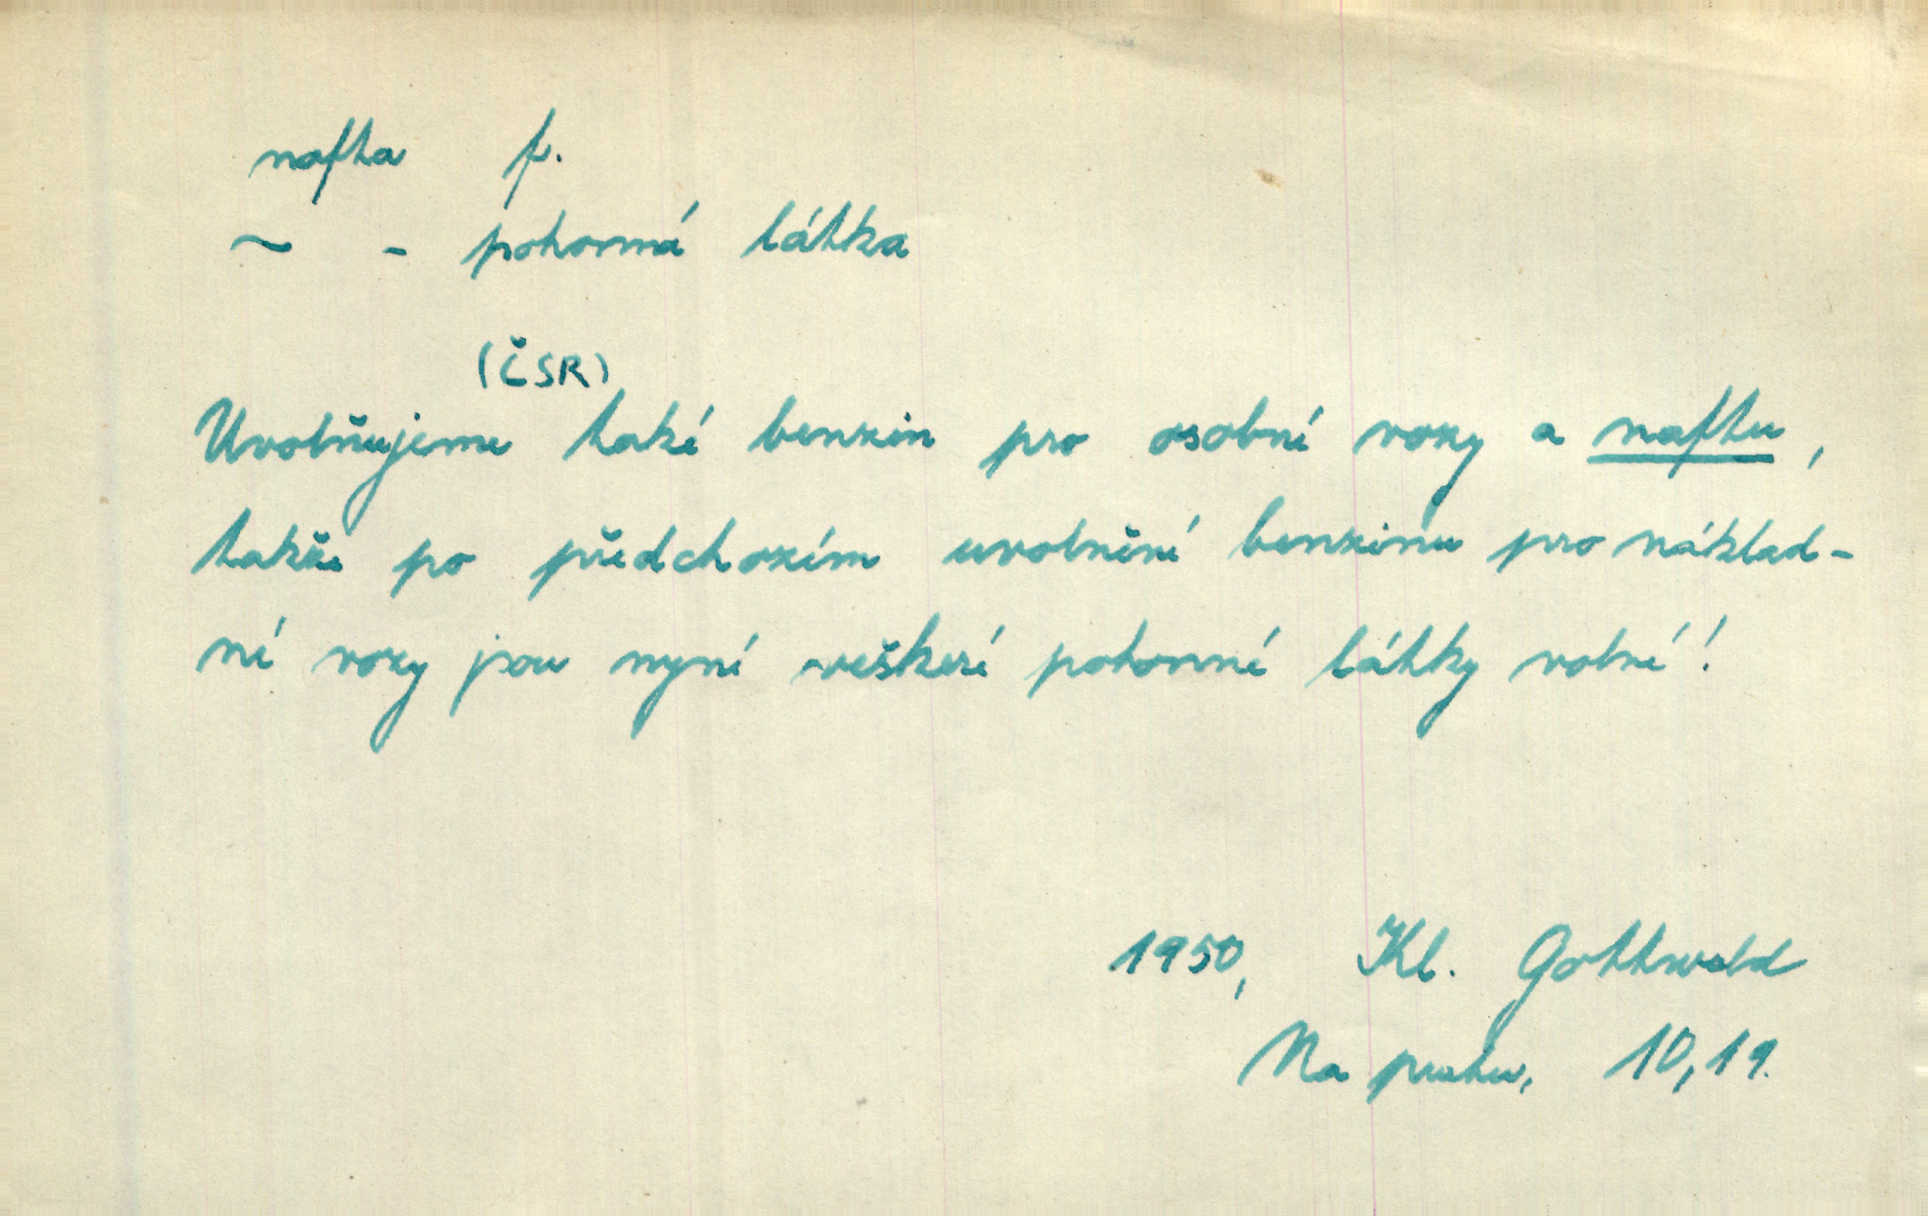 nafta f.
~ - pohonná látka
(ČSR)
Uvolňujeme také benzin pro osobní vozy a naftu,
takže po předchozím uvolnění benzinu pro náklad-
ní vozy jsou nyní veškeré pohonné látky volné!
1950, Kl. Gottwald
Na prahu, 10,19.